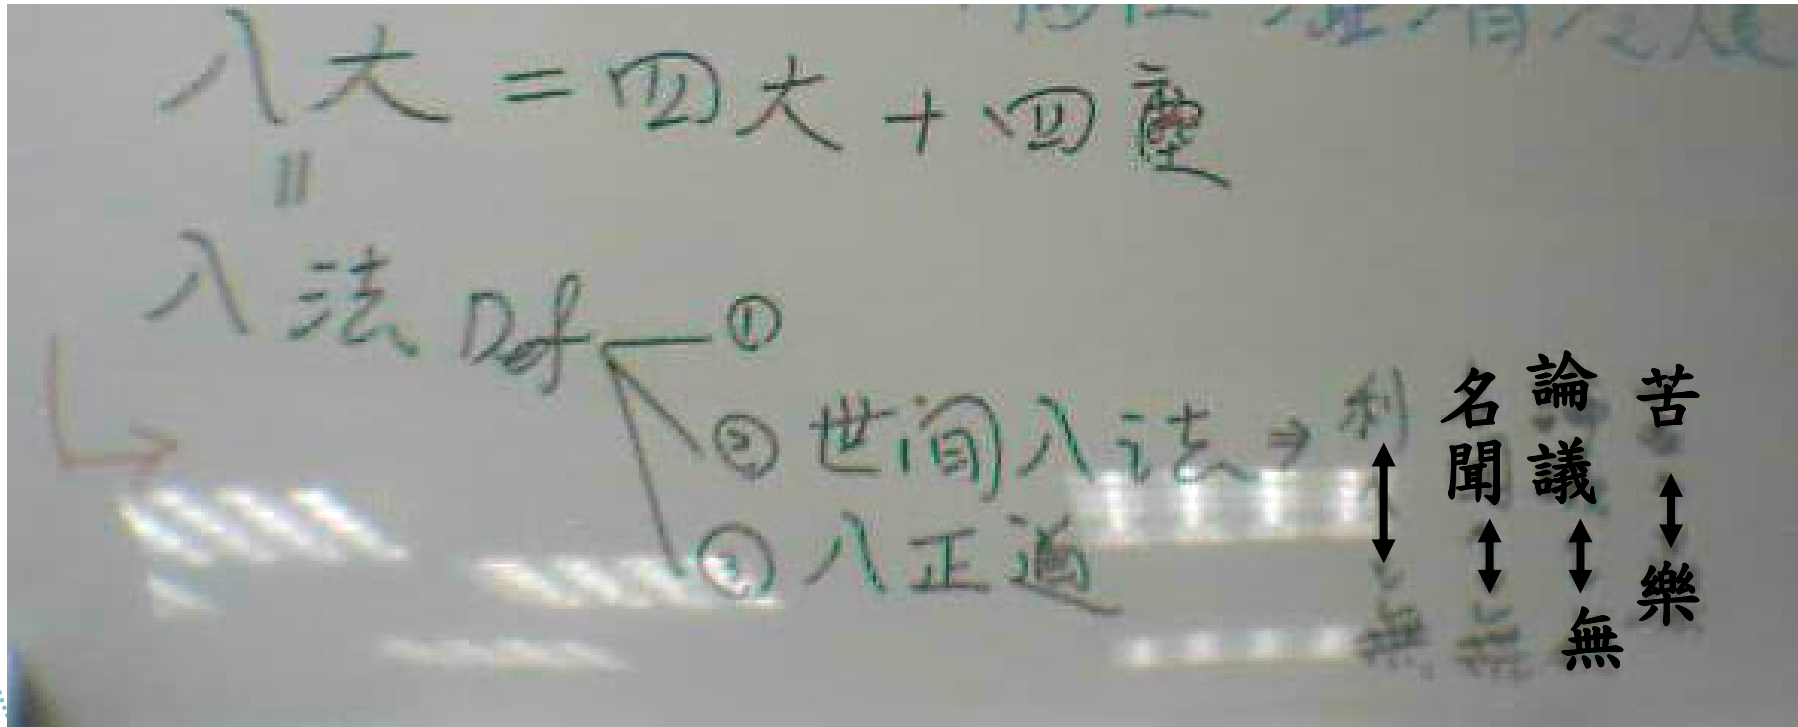 八大 = 四大 + 四塵
||
八法 Def ①
② 世间八法 ⇒ 利 ↔ 無 名聞 ↔ 無 論議 ↔ 無 苦 ↔ 樂
③ 八正道